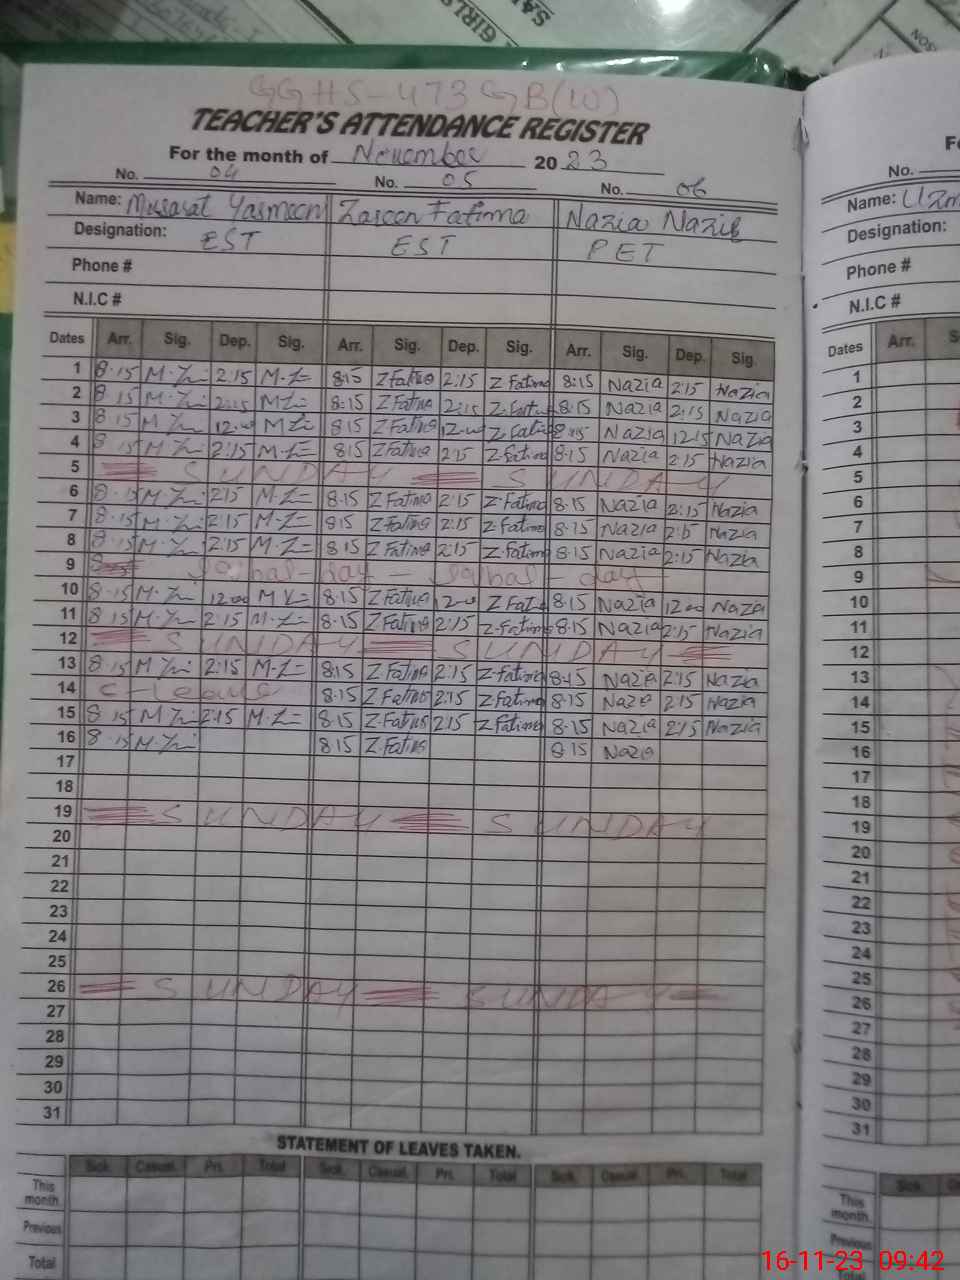 GIRLS
GGHS-473 GB(W)
TEACHER'S ATTENDANCE REGISTER
For the month of November 2023
No. 04 No. 05 No. 06 No.
Name: Musarat Yasmeen Zareen Fatima Nazia Nazir Name:
Designation: EST EST PET Designation:
Phone # Phone #
N.I.C # N.I.C #
Dates Arr. Sig. Dep. Sig. Arr. Sig. Dep. Sig. Arr. Sig. Dep. Sig. Dates Arr.
1 8.15 2:15 8:15 Z Fatima 2:15 Z Fatima 8:15 Nazia 2:15 Nazia 1
2 8.15 2:15 8:15 Z Fatima 2:15 Z. Fatima 8.15 Nazia 2:15 Nazia 2
3 8.15 12.00 8:15 Z Fatima 12.00 Z Fatima 8:15 Nazia 12:15 Nazia 3
4 8.15 2:15 8:15 Z Fatima 2:15 Z. Fatima 8.15 Nazia 2:15 Nazia 4
5 SUNDAY SUNDAY 5
6 8.15 2:15 8.15 Z Fatima 2:15 Z. Fatima 8.15 Nazia 2:15 Nazia 6
7 8.15 2:15 8:15 Z Fatima 2:15 Z. Fatima 8.15 Nazia 2:15 Nazia 7
8 8.15 2:15 8:15 Z Fatima 2:15 Z. Fatima 8:15 Nazia 2:15 Nazia 8
9 Iqbal-day - Iqbal-day 9
10 8.15 12.00 8.15 Z Fatima 12.00 Z Fatima 8.15 Nazia 12.00 Nazia 10
11 8.15 2:15 8.15 Z Fatima 2:15 Z. Fatima 8.15 Nazia 2:15 Nazia 11
12 SUNDAY SUNDAY 12
13 8.15 2:15 8.15 Z. Fatima 2:15 Z. Fatima 8.15 Nazia 2:15 Nazia 13
14 C-leave 8.15 Z. Fatima 2:15 Z. Fatima 8.15 Nazia 2:15 Nazia 14
15 8.15 2:15 8.15 Z. Fatima 2:15 Z Fatima 8.15 Nazia 2:15 Nazia 15
16 8.15 8.15 Z. Fatima 8.15 Nazia 16
17 17
18 18
19 SUNDAY SUNDAY 19
20 20
21 21
22 22
23 23
24 24
25 25
26 SUNDAY SUNDAY 26
27 27
28 28
29 29
30 30
31 31
STATEMENT OF LEAVES TAKEN.
Sick. Casual. Pri. Total Sick. Casual. Pri. Total Sick. Casual. Pri. Total Sick.
This month. This month.
Previous Previous
Total Total
16-11-23 09:42